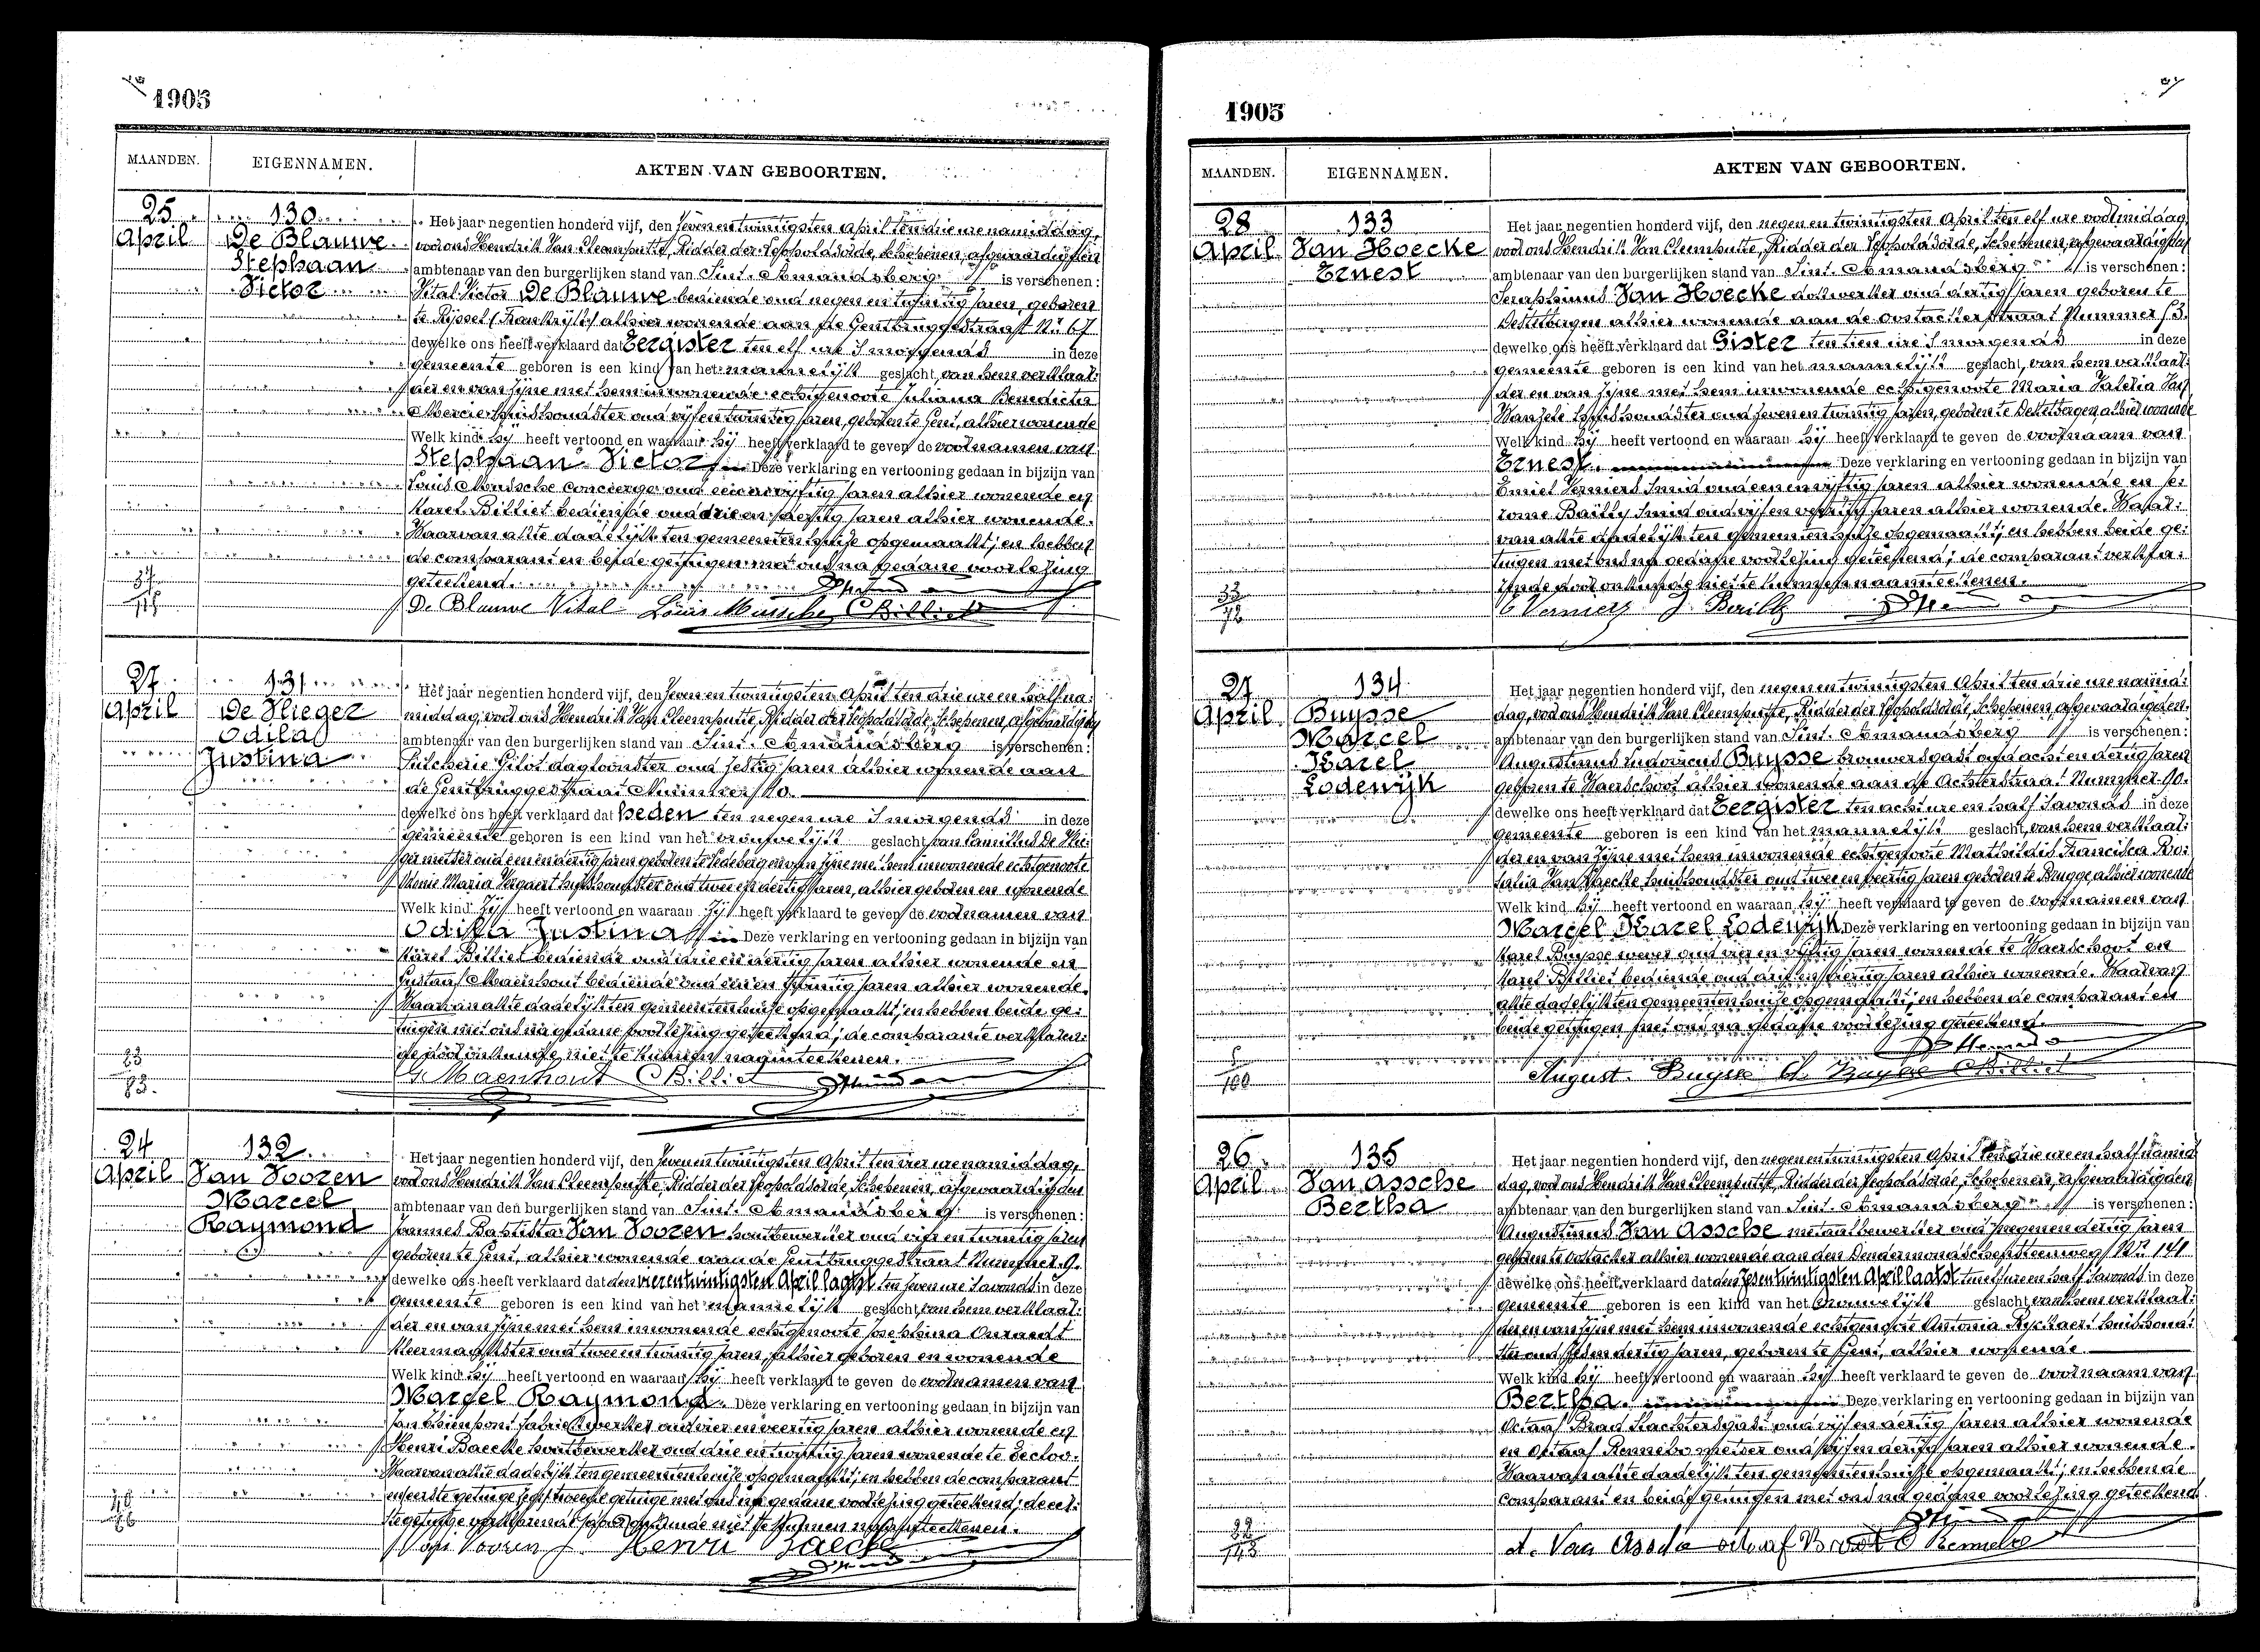 1905
MAANDEN. EIGENNAMEN. AKTEN VAN GEBOORTEN.
25 April
130
De Blauwe
Stephaan
Victor
Het jaar negentien honderd vijf, den zeven en twintigsten April ten drie ure namiddag,
voor ons Hendrik Van Cleemputte, Ridder der Leopoldsorde, Schepenen, afgevaardigden
ambtenaar van den burgerlijken stand van Sint. Amandsberg is verschenen:
Vital Victor De Blauwe bediende oud negen en twintig jaren, geboren
te Ryssel (Frankrijk) alhier wonende aan de Gentbruggestraat Nr. 67
dewelke ons heeft verklaard dat Eergister ten elf ure 's morgends in deze
gemeente geboren is een kind van het mannelijk geslacht, van hem verklaar:
der en van zijne met hem inwonende echtgenoote Juliana Benedicta
Mercier huishoudster oud vijf en twintig jaren, geboren te Gent, alhier wonende
Welk kind hij heeft vertoond en waaraan hij heeft verklaard te geven de voornamen van
Stephaan Victor Deze verklaring en vertooning gedaan in bijzijn van
Louis Mussche concierge oud een en vijftig jaren alhier wonende en
Karel Billiet bediende oud drie en veertig jaren alhier wonende.
Waarvan akte dadelijk ten gemeentenhuize opgemaakt; en hebben
de comparant en beide getuigen met ons na gedane voorlezing
geteekend.
37
De Blauwe Vital Louis Mussche C Billiet
27 April
131
De Vlieger
Odila
Justina
Het jaar negentien honderd vijf, den zeven en twintigsten April ten drie ure en half na:
middag, voor ons Hendrik Van Cleemputte, Ridder der Leopoldsorde, Schepenen, afgevaardigden
ambtenaar van den burgerlijken stand van Sint. Amandsberg is verschenen:
Pulcherie Gilot dagloonster oud zestig jaren alhier wonende aan
de Gentbruggestraat Nummer 10.
dewelke ons heeft verklaard dat heden ten negen ure 's morgends in deze
gemeente geboren is een kind van het vrouwelijk geslacht van Camillus De Vlie:
ger metser oud een en dertig jaren geboren te Ledeberg en van zijne met hem inwonende echtgenoote
Maria huishoudster oud twee en dertig jaren, alhier geboren en wonende
Welk kind Zij heeft vertoond en waaraan Zij heeft verklaard te geven de voornamen van
Odila Justina Deze verklaring en vertooning gedaan in bijzijn van
Karel Billiet bediende oud drie en veertig jaren alhier wonende en
Gustaaf Maenhout bediende oud een en twintig jaren alhier wonende.
Waarvan akte dadelijk ten gemeentenhuize opgemaakt; en hebben beide ge:
tuigen met ons na gedane voorlezing geteekend; de comparante verklaren:
de door onkunde niet te kunnen naamteekenen.
23
83.
G. Maenhout C Billiet
24 April
132
Van Vooren
Marcel
Raymond
Het jaar negentien honderd vijf, den zeven en twintigsten April ten vier ure namiddag,
voor ons Hendrik Van Cleemputte, Ridder der Leopoldsorde, Schepenen, afgevaardigden
ambtenaar van den burgerlijken stand van Sint. Amandsberg is verschenen:
Joannes Baptista Van Vooren houtbewerker oud vier en twintig jaren
geboren te Gent, alhier wonende aan de Gentbruggestraat Nummer 9.
dewelke ons heeft verklaard dat den vierentwintigsten April laatst ten zeven ure 's avonds in deze
gemeente geboren is een kind van het mannelijk geslacht van hem verklaar:
der en van zijne met hem inwonende echtgenoote Josephina
kleermaakster oud twee en twintig jaren, alhier geboren en wonende
Welk kind hij heeft vertoond en waaraan hij heeft verklaard te geven de voornamen van
Marcel Raymond. Deze verklaring en vertooning gedaan in bijzijn van
Jan fabriekwerker oud vier en veertig jaren alhier wonende en
Henri Baecke houtbewerker oud drie en twintig jaren wonende te Eecloo.
Waarvan akte dadelijk ten gemeentenhuize opgemaakt; en hebben de comparant
en tweede getuige met ons na gedane voorlezing geteekend; de eer:
ste getuige verklarende door onkunde niet te kunnen naamteekenen.
Van Vooren J. Henri Baecke
1905
MAANDEN. EIGENNAMEN. AKTEN VAN GEBOORTEN.
28 April
133
Van Hoecke
Ernest
Het jaar negentien honderd vijf, den negen en twintigsten April ten elf ure voormiddag,
voor ons Hendrik Van Cleemputte, Ridder der Leopoldsorde, Schepenen, afgevaardigden
ambtenaar van den burgerlijken stand van Sint. Amandsberg is verschenen:
Seraphinus Van Hoecke dokwerker oud dertig jaren geboren te
Destelbergen alhier wonende aan de Oostackerstraat Nummer 53.
dewelke ons heeft verklaard dat Gister ten tien ure 's morgends in deze
gemeente geboren is een kind van het mannelijk geslacht, van hem verklaar:
der en van zijne met hem inwonende echtgenoote Maria Valeria Van
Wanzele huishoudster oud zeven en twintig jaren, geboren te Destelbergen, alhier wonende
Welk kind hij heeft vertoond en waaraan hij heeft verklaard te geven de voornaam van
Ernest. Deze verklaring en vertooning gedaan in bijzijn van
Emiel Smid oud een en vijftig jaren alhier wonende en Je:
rome Bailly Smid oud vijf en veertig jaren alhier wonende. Waar:
van akte dadelijk ten gemeentenhuize opgemaakt; en hebben beide ge:
tuigen met ons na gedane voorlezing geteekend; de comparant verkla:
rende door onkunde niet te kunnen naamteekenen.
33
72
J. Bailly
27 April
134
Buysse
Marcel
Karel
Lodewijk
Het jaar negentien honderd vijf, den negen en twintigsten April ten drie ure namid:
dag, voor ons Hendrik Van Cleemputte, Ridder der Leopoldsorde, Schepenen, afgevaardigden
ambtenaar van den burgerlijken stand van Sint. Amandsberg is verschenen:
Augustinus Ludovicus Buysse brouwersgast oud acht en dertig jaren
geboren te Waerschoot alhier wonende aan de Achterstraat Nummer 90.
dewelke ons heeft verklaard dat Eergister ten acht ure en half 's avonds in deze
gemeente geboren is een kind van het mannelijk geslacht, van hem verklaar:
der en van zijne met hem inwonende echtgenoote Mathildis Francisca Ro:
salia Van Haecke huishoudster oud twee en veertig jaren geboren te Brugge, alhier wonende
Welk kind hij heeft vertoond en waaraan hij heeft verklaard te geven de voornamen van
Marcel Karel Lodewijk Deze verklaring en vertooning gedaan in bijzijn van
Karel Buysse wever oud vier en vijftig jaren wonende te Waerschoot en
Karel Billiet bediende oud drie en veertig jaren alhier wonende. Waarvan
akte dadelijk ten gemeentenhuize opgemaakt; en hebben de comparant en
beide getuigen met ons na gedane voorlezing geteekend.
100
August. Buysse Ch. Buysse C Billiet
26 April
135
Van Assche
Bertha
Het jaar negentien honderd vijf, den negen en twintigsten April ten drie ure en half namid
dag, voor ons Hendrik Van Cleemputte, Ridder der Leopoldsorde, Schepenen, afgevaardigden
ambtenaar van den burgerlijken stand van Sint. Amandsberg is verschenen:
Augustinus Van Assche metaalbewerker oud negen en dertig jaren
geboren te Oostacker alhier wonende aan den Dendermondschensteenweg Nr. 141
dewelke ons heeft verklaard dat den zesentwintigsten April laatst ten elf ure en half 's avonds in deze
gemeente geboren is een kind van het vrouwelijk geslacht van hem verklaar:
der en van zijne met hem inwonende echtgenoote Antonia Ryckaert huishoud:
ster oud zes en dertig jaren, geboren te Gent, alhier wonende
Welk kind hij heeft vertoond en waaraan hij heeft verklaard te geven de voornaam van
Bertha. Deze verklaring en vertooning gedaan in bijzijn van
Octaaf slachtersgast oud vijf en dertig jaren alhier wonende
en Octaaf metser oud vijf en dertig jaren alhier wonende.
Waarvan akte dadelijk ten gemeentenhuize opgemaakt; en hebben de
comparant en beide getuigen met ons na gedane voorlezing geteekend
22
143
A. Van Assche